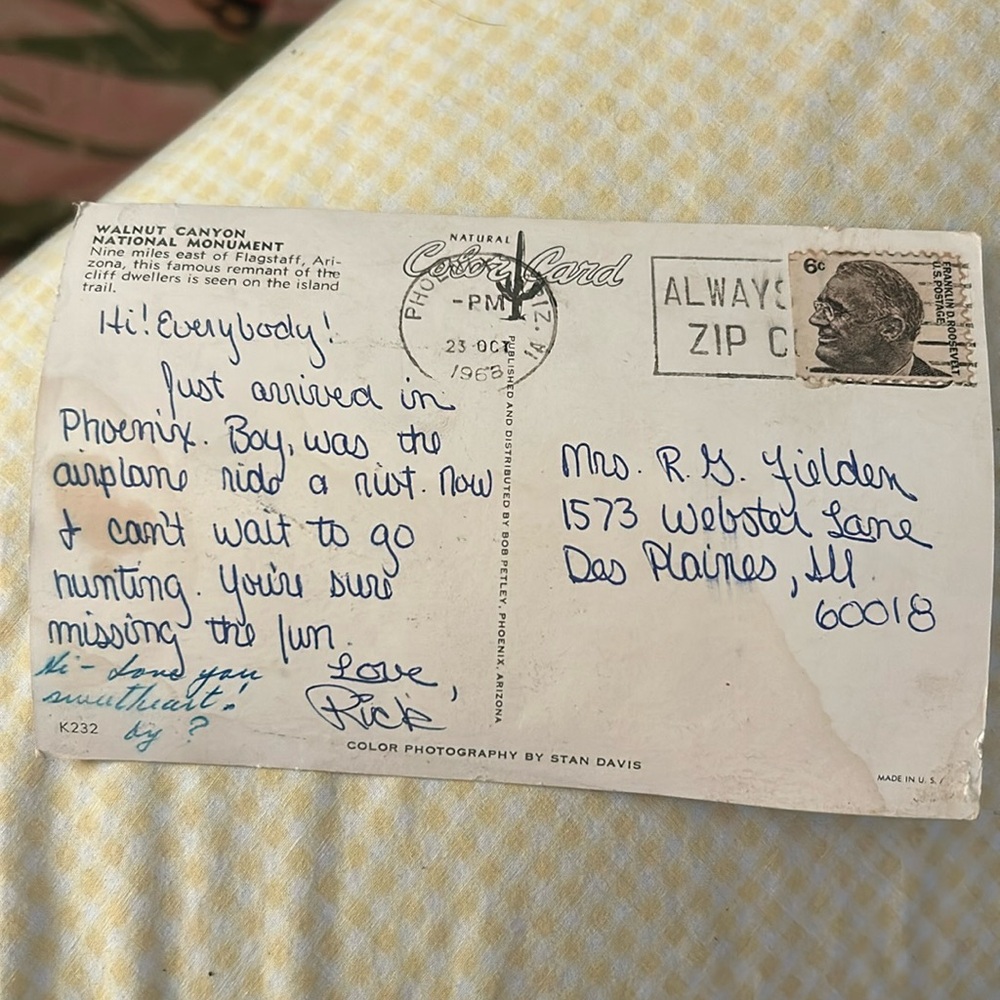 WALNUT CANYON
NATIONAL MONUMENT
Nine miles east of Flagstaff, Ari-
zona, this famous remnant of the
cliff dwellers is seen on the island
trail.
Hi! Everybody!
Just arrived in
Phoenix. Boy, was the
airplane ride a riot. Now
I can't wait to go
hunting. You're sure
missing the fun.
Love,
Rick
Hi - Love you
sweetheart!
by ?
K232
COLOR PHOTOGRAPHY BY STAN DAVIS
NATURAL
Color Card
PUBLISHED AND DISTRIBUTED BY BOB PETLEY, PHOENIX, ARIZONA
PHOE IZ.
-PM
23 OCT
1968
1A
ALWAYS
ZIP C
6c
FRANKLIN D. ROOSEVELT
U.S. POSTAGE
Mrs. R. G. Fielden
1573 Webster Lane
Des Plaines, Ill.
60018
MADE IN U. S.